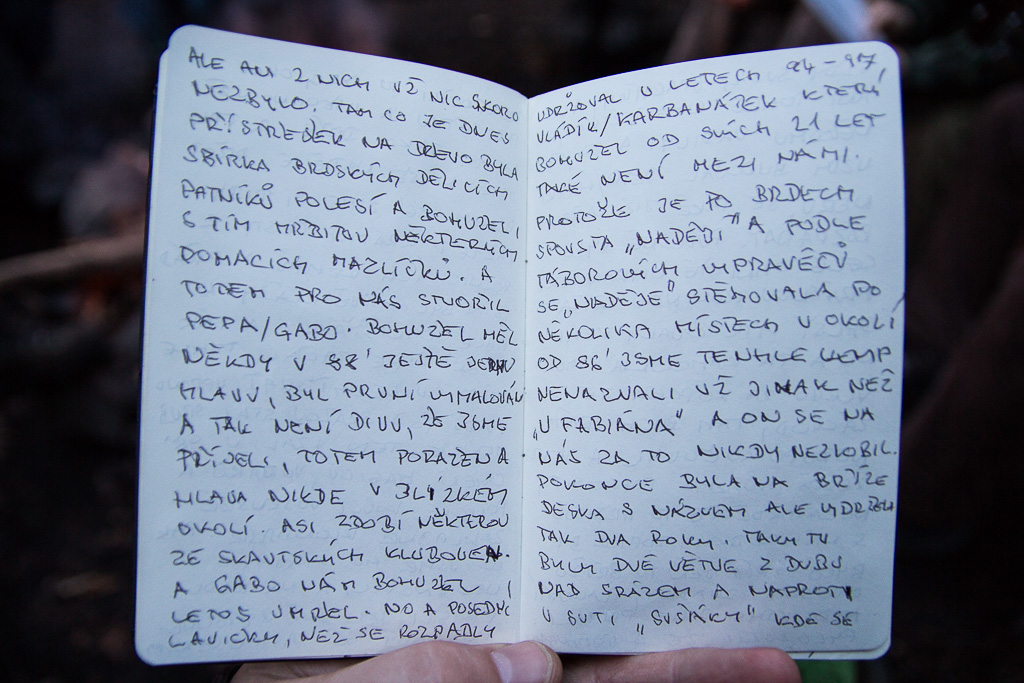 ALE ANI Z NICH UŽ NIC SKORO
NEZBYLO. TAM CO JE DNES
PŘÍSTŘEŠEK NA DŘEVO BYLA
SBÍRKA BRDSKÝCH DĚLÍCÍCH
PATNÍKŮ POLESÍ A BOHUŽEL I
S TÍM HŘBITOV NĚKTERÝCH
DOMACÍCH MAZLÍČKŮ. A
TOTEM PRO NÁS STVOŘIL
PEPA/GABO. BOHUŽEL MĚL
NĚKDY V 88' JEŠTĚ JEDNU
HLAVU, BYL PRVNÍ VYMALOVÁN
A TAK NENÍ DIVU, ŽE JSME
PŘIJELI, TOTEM PORAŽEN A
HLAVA NIKDE V BLÍZKÉM
OKOLÍ. ASI ZDOBÍ NĚKTEROU
ZE SKAUTSKÝCH KLUBOVEN.
A GABO NÁM BOHUŽEL I
LETOS UMŘEL. NO A POSEDNÍ
LAVIČKY, NEŽ SE ROZPADLY
UDRŽOVAL V LETECH 94-97,
VLÁDÍK/KARBANÁTEK KTERÝ
BOHUŽEL OD SVÝCH 21 LET
TAKÉ NENÍ MEZI NÁMI.
PROTOŽE JE PO BRDECH
SPOUSTA „NADĚJÍ" A PODLE
TÁBOROVÝCH VYPRAVĚČŮ
SE „NADĚJE" STĚHOVALA PO
NĚKOLIKA MÍSTECH V OKOLÍ
OD 86' JSME TENHLE KEMP
NENAZVALI UŽ JINAK NEŽ
„U FABIÁNA" A ON SE NA
NÁS ZA TO NIKDY NEZLOBIL.
DOKONCE BYLA NA BŘÍZE
DESKA S NÁZVEM ALE VYDRŽELA
TAK DVA ROKY. TAKY TU
BYLY DVĚ VĚTVE Z DUBU
NAD SRÁZEM A NAPROTI
V SUTI „SUŠÁKY" KDE SE